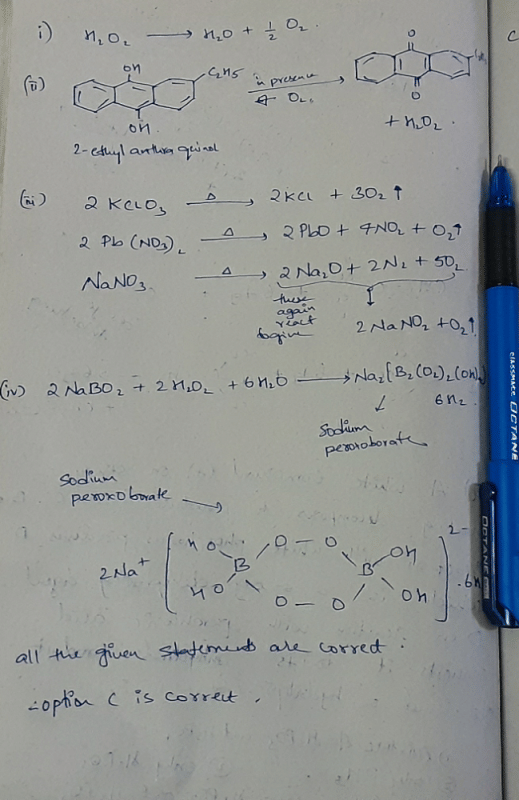 i) H₂O₂ ⟶ H₂O + ½ O₂.
(ii) OH C₂H₅ in presence of O₂, O O
OH + H₂O₂.
2-ethyl anthra quinol
(iii) 2 KClO₃ —Δ→ 2KCl + 3O₂↑
2 Pb(NO₃)₂ —Δ→ 2PbO + 4NO₂ + O₂↑
NaNO₃. —Δ→ 2Na₂O + 2N₂ + 5O₂
these again react to give 2NaNO₂ + O₂↑
(iv) 2NaBO₂ + 2H₂O₂ + 6H₂O ⟶ Na₂[B₂(O₂)₂(OH)
6H₂
Sodium peroxoborate
Sodium peroxoborate
2Na⁺ [ HO HO B O–O O–O B OH OH ]²⁻ .6H
all the given statements are correct.
∴ option C is correct.
classmate OCTANE
OCTANE